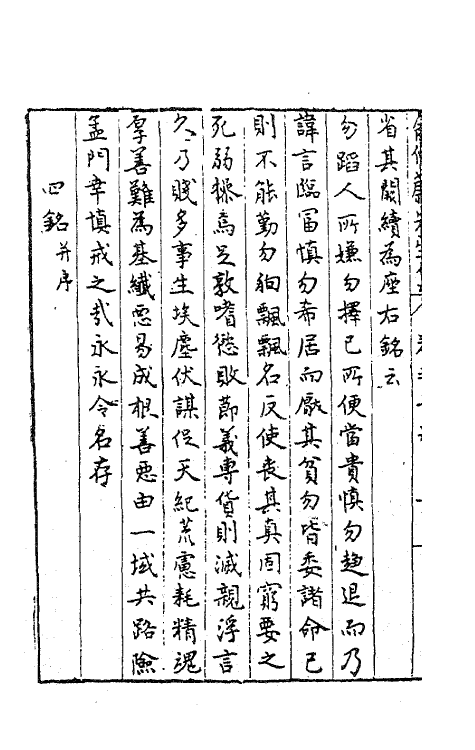 省其闕續為座右銘云
勿蹈人所嫌勿擇己所便當貴慎勿趨退而乃
諱言臨富慎勿希居而厭其貧勿皆委諸命已
則不能勤勿徇飄飄名反使喪其真固窮要之
死弱操焉足敦嗜慾敗節義專貨則滅親浮言
久乃賤多事生埃塵伏謀促天紀荒慮耗精魂
厚善難為基纖惡易成根善惡由一域共路險
孟門幸慎戒之哉永永令名存
四銘并序